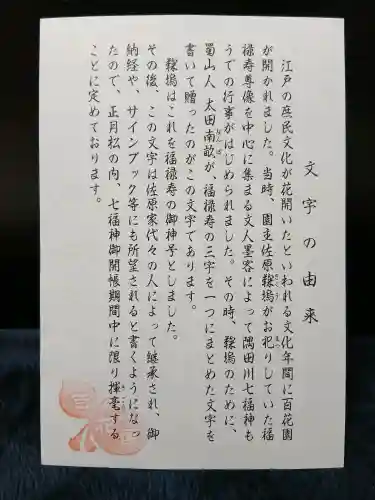 文字の由来
江戸の庶民文化が花開いたといわれる文化年間に百花園
が開かれました。当時、園主佐原鞠塢がお祀りしていた福
禄寿尊像を中心に集まる文人墨客によって隅田川七福神も
うでの行事がはじめられました。その時、鞠塢のために、
蜀山人 太田南畝が、福禄寿の三字を一つにまとめた文字を
書いて贈ったのがこの文字であります。
鞠塢はこれを福禄寿の御神号としました。
その後、この文字は佐原家代々の人によって継承され、御
納経や、サインブック等にも所望されると書くようになっ
たので、正月松の内、七福神御開帳期間中に限り揮毫する
ことに定めております。